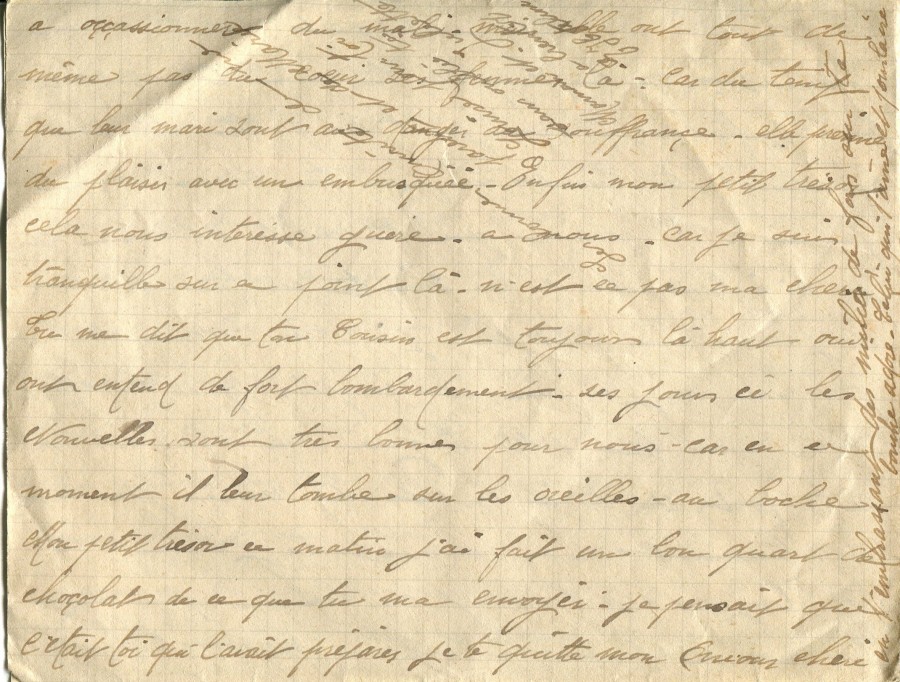 a occassionner du mal - elle ont tout de
même pas du coeur ses femmes là - car du temps
que leur mari sont au danger de souffrançe - elle prenne
du plaisir avec un embusquée - Enfin mon petit trésor
cela nous interesse guere - a nous - car je suis
tranquille sur ce point là - n'est ce pas ma cherie
Tu me dit que ton Cousin est toujours là haut oui
ont entend de fort bombardement - ses jours ci les
Nouvelles sont très bonnes pour nous - car en ce
moment il leur tombe sur les oreilles - au boche
Mon petit trésor ce matin j'ai fait un bon quart de
choçolat de ce que tu ma envoyer - je pensait que
c'était toi qui l'avait préparer je te quitte mon Amour cheri
en t'embrassant des milier de fois sur ta
bouche adoré - Celui qui t'aime et pour la vie